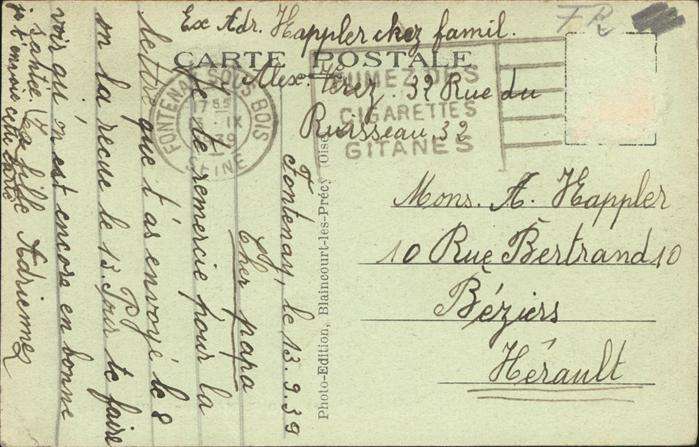 FR
Ex Adr. Happler chez famil.
Alex. Pérez. 32 Rue du
Ruisseau 32
CARTE POSTALE
FONTENAY-SOUS-BOIS
17 55
13 IX
39
SEINE
FUMEZ DES
CIGARETTES
GITANES
Fontenay, le 13.9.39
Cher papa
Je te remercie pour la
lettre que t'as envoyé le 8
on la recue le 13. Pour te faire
voir qu'on est encore en bonne
santé je t'envois cette carte
Ta fille Adrienne
Photo-Edition, Blaincourt-les-Précy (Oise)
Mons. A. Happler
10 Rue Bertrand 10
Béziers
Hérault